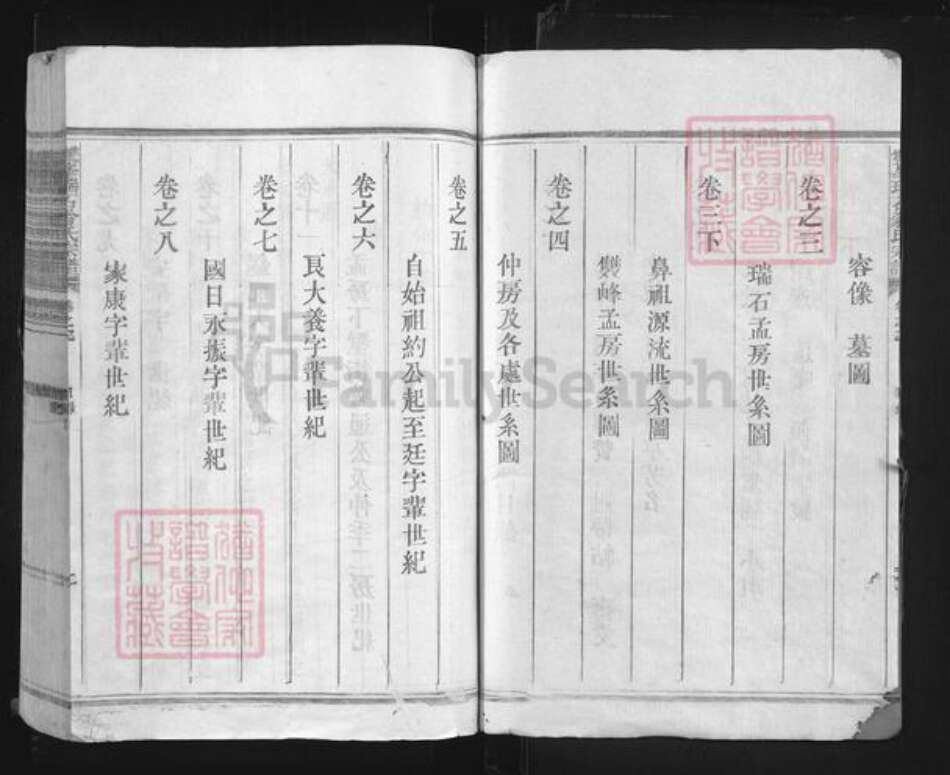 容像　墓圖
卷之三
瑞石孟房世系圖
卷三下
鼻祖源流世系圖
雙峰孟房世系圖
仲房及各處世系圖
卷之四
自始祖約公起至廷字輩世紀
卷之五
良大養字輩世紀
卷之六
國日永振字輩世紀
卷之七
家康字輩世紀
卷之八
FamilySearch